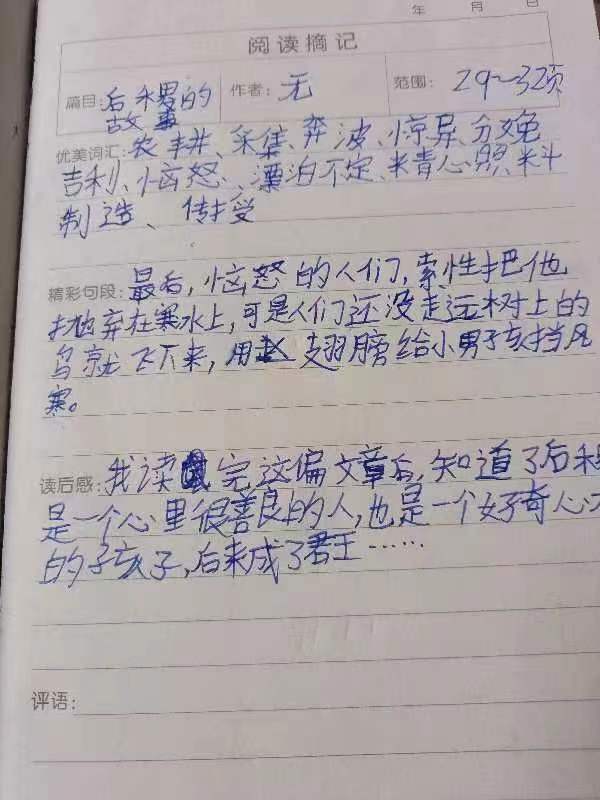 年 月 日
阅读摘记
篇目:后稷的故事 作者:无 范围:29~32项
优美词汇:农耕、采集、奔波、惊异、分娩
吉利、恼怒、漂泊不定、精心照料
制造、传授
精彩句段:最后,恼怒的人们,索性把他
抛弃在寒水上,可是人们还没走远树上的
鸟就飞下来,用翅膀给小男孩挡风
寒。
读后感:我读完这偏文章后,知道了后稷
是一个心里很善良的人,也是一个好奇心
的孩子,后来成了君王……
评语: